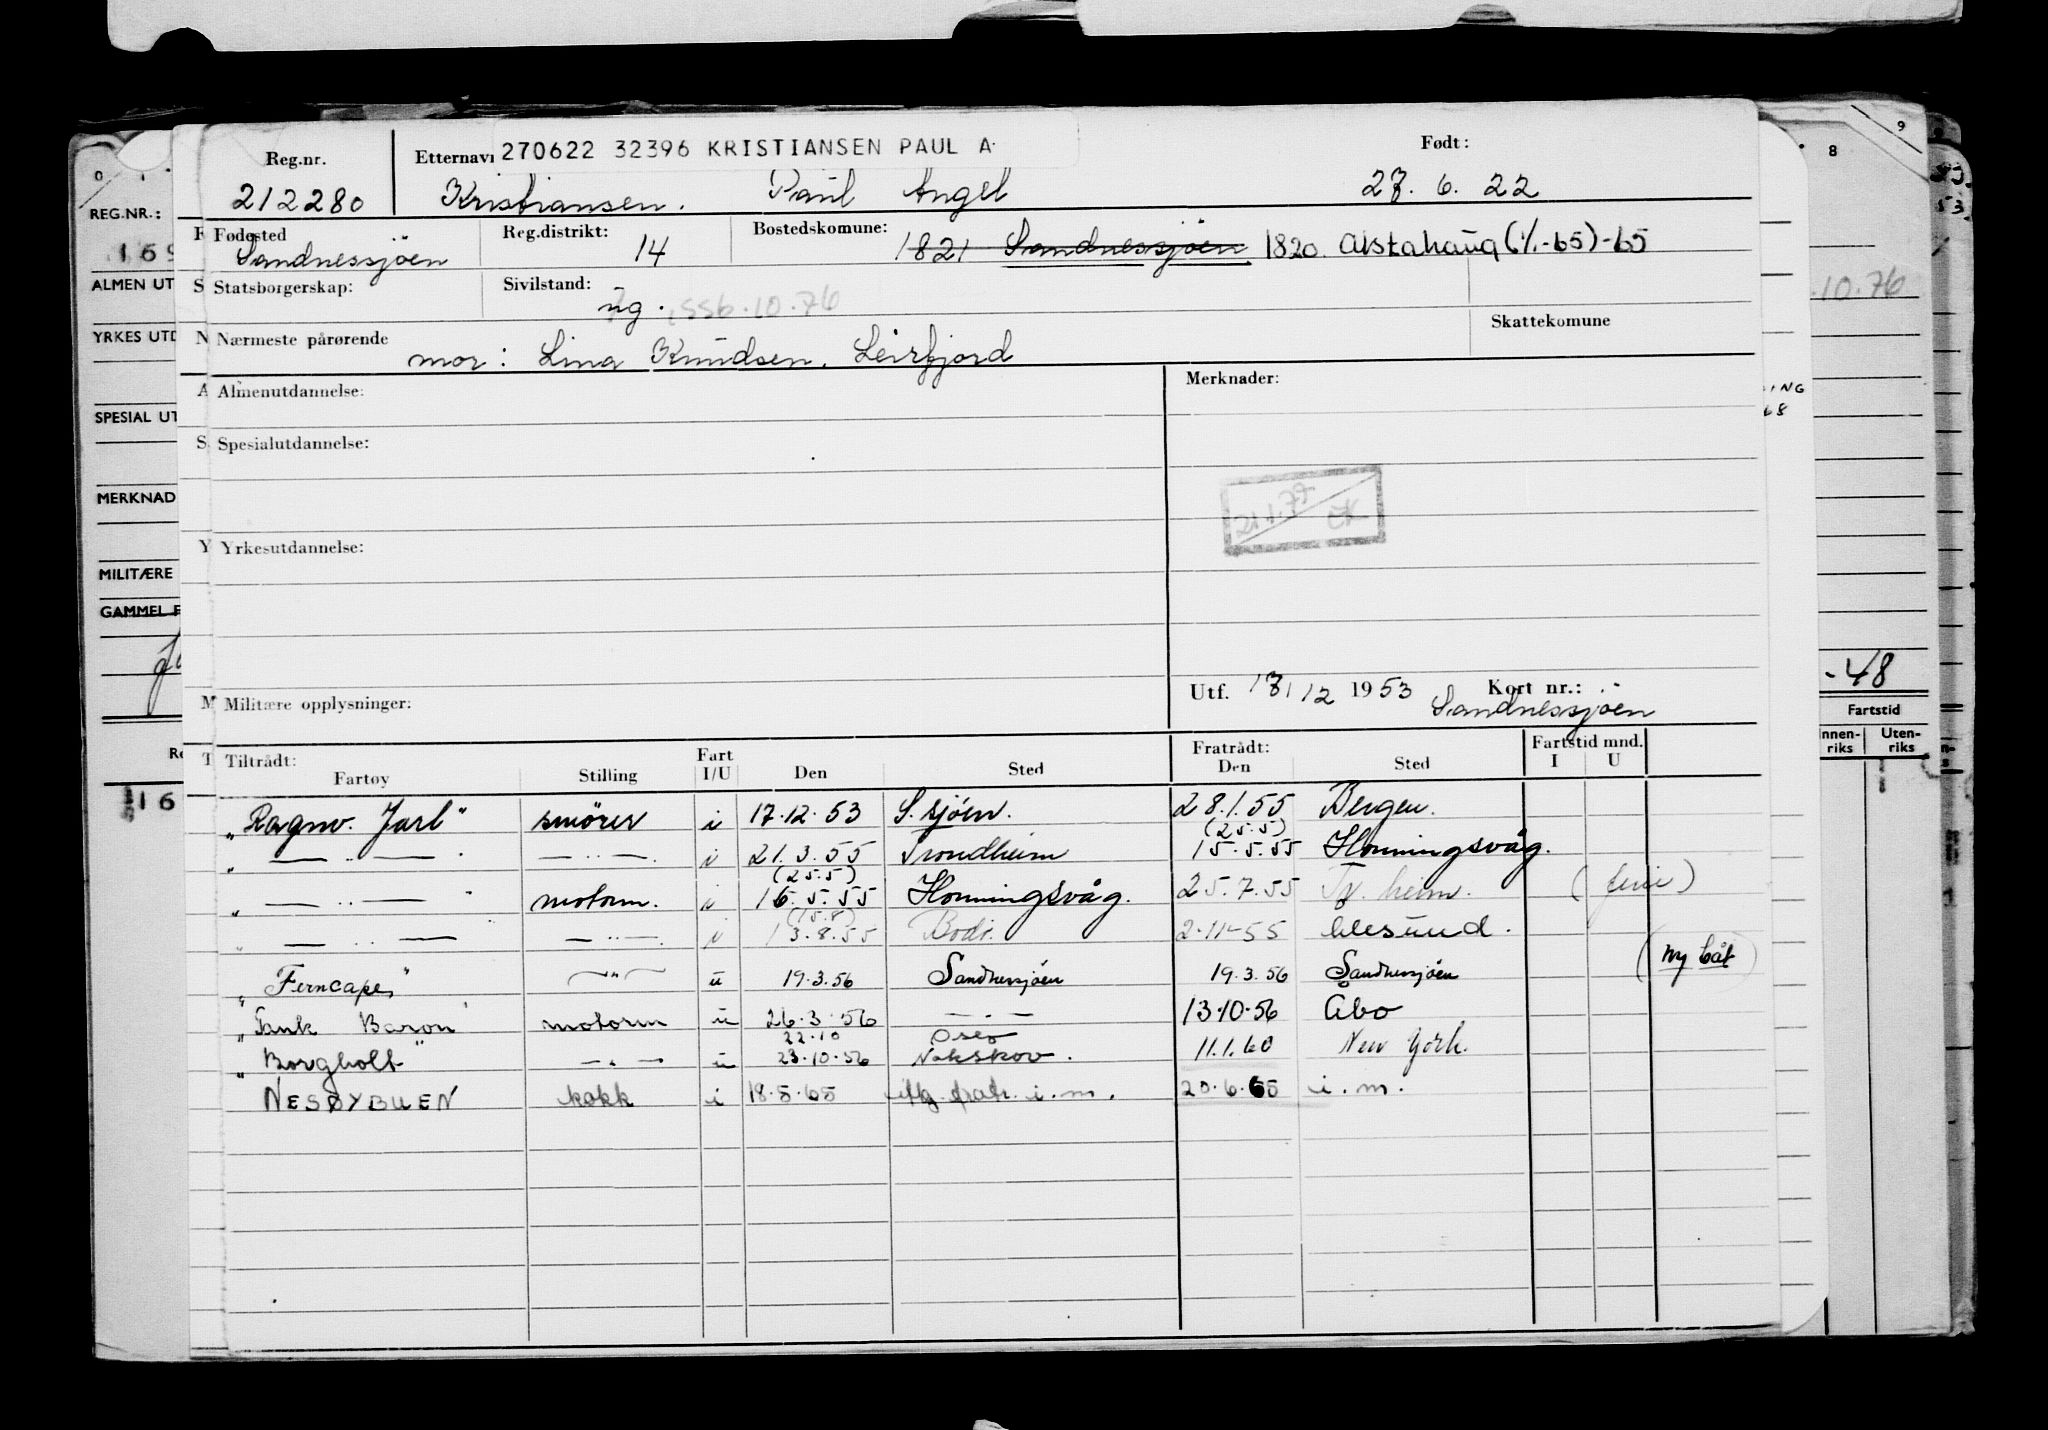 Reg.nr. Etternavn 270622 32396 KRISTIANSEN PAUL A Født:
212280 Kristiansen. Paul Angel 27. 6. 22
Fødested Reg.distrikt: Bostedskomune:
Sandnessjöen 14 1821 Sandnessjöen 1820. Alstahaug (1/1-65)-65
Statsborgerskap: Sivilstand:
ug. 10.76
Nærmeste pårørende Skattekomune
mor: Lina Knudsen. Leirfjord
Almenutdannelse: Merknader:
Spesialutdannelse:
Yrkesutdannelse:
Militære opplysninger: Utf. 1953 Kort nr.:
Sandnessjöen
Tiltrådt: Fratrådt: Fartstid mnd.
Fartøy Stilling Fart I/U Den Sted Den Sted I U
"Ragnv. Jarl" smörer i 17.12.53 S.sjöen. 28.1.55 Bergen.
(25.5)
" — " — — " — i 21.3.55 Trondheim 15.5.55 Honningsvåg.
(25.5)
" — " — motorm. i 16.5.55 Honningsvåg. 25.7.55 Tr.heim. (ferie)
(15.8)
" — " — — " — i 13.8.55 Bodö. 2.11-55 Alesund.
"Ferncape" — " — u 19.3.56 Sandnessjöen 19.3.56 Sandnessjöen (ny båt)
"Tank Baron" motorm u 26.3.56 — " — 13.10.56 Åbo
22.10 Oslo
"Borgholt" — " — u 23.10.56 Nakskov. 11.1.60 New York.
NESØYBUEN kokk i 18.5.65 iflg fratr. i.m. 20.6.65 i.m.
REG.NR.:
ALMEN UT
YRKES UTD
SPESIAL UT
MERKNAD
MILITÆRE
GAMMEL
8
9
10.76
-48
Fartstid
Innen-riks Uten-riks
16